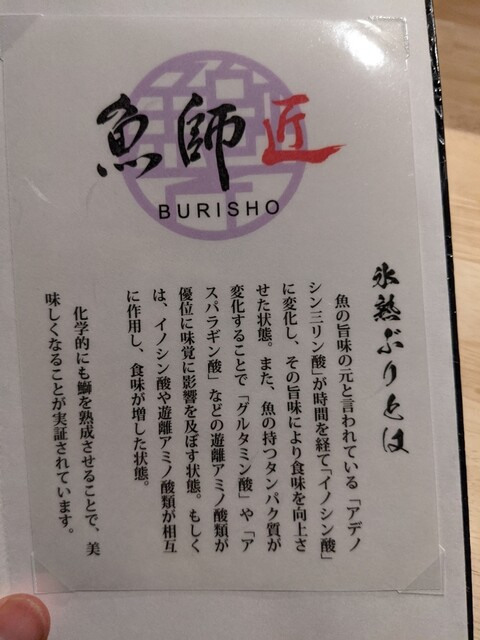 魚師匠
BURISHO
氷熟ぶりとは
魚の旨味の元と言われている「アデノ
シン三リン酸」が時間を経て「イノシン酸」
に変化し、その旨味により食味を向上さ
せた状態。また、魚の持つタンパク質が
変化することで「グルタミン酸」や「ア
スパラギン酸」などの遊離アミノ酸類が
優位に味覚に影響を及ぼす状態。もしく
は、イノシン酸や遊離アミノ酸類が相互
に作用し、食味が増した状態。
化学的にも鰤を熟成させることで、美
味しくなることが実証されています。